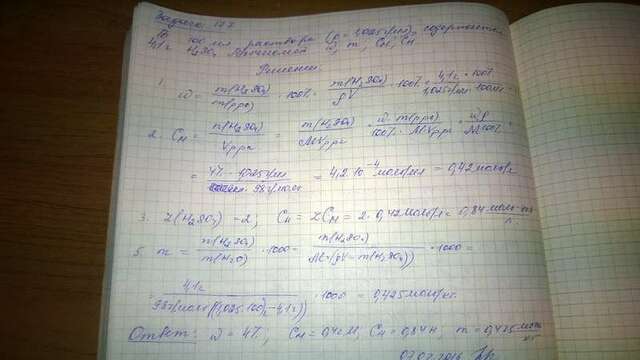 Задача
В 100 мл раствора (ρ = 1,025 г/мл) содержится
4,1 г H₂SO₃ ω, m, Cм, Cн
Решение
1. ω = m(H₂SO₃)/m(рра) · 100% = m(H₂SO₃)/ρV · 100% = 4,1г · 100%/1,025 г/мл · 100 мл =
2. Cм = n(H₂SO₃)/Vрра = m(H₂SO₃)/MVрра = ω · m(рра)/100% · MVрра = ωρ/M100% =
= 4% · 1,025 г/мл/98 г/моль = 4,2·10⁻⁴ моль/мл = 0,42 моль/л
3. Z(H₂SO₃) = 2; Cн = ZCм = 2 · 0,42 моль/л = 0,84
5. m = n(H₂SO₃)/m(H₂O) · 1000 = n(H₂SO₃)/M(ρV - m(H₂SO₃)) · 1000 =
= 4,1г/98 г/моль(1,025·100 - 4,1г) · 1000 = 0,425 моль/кг.
Ответ: ω = 4%, Cм = 0,42М, Cн = 0,84н, m = 0,425 моль/кг
07.02.2016